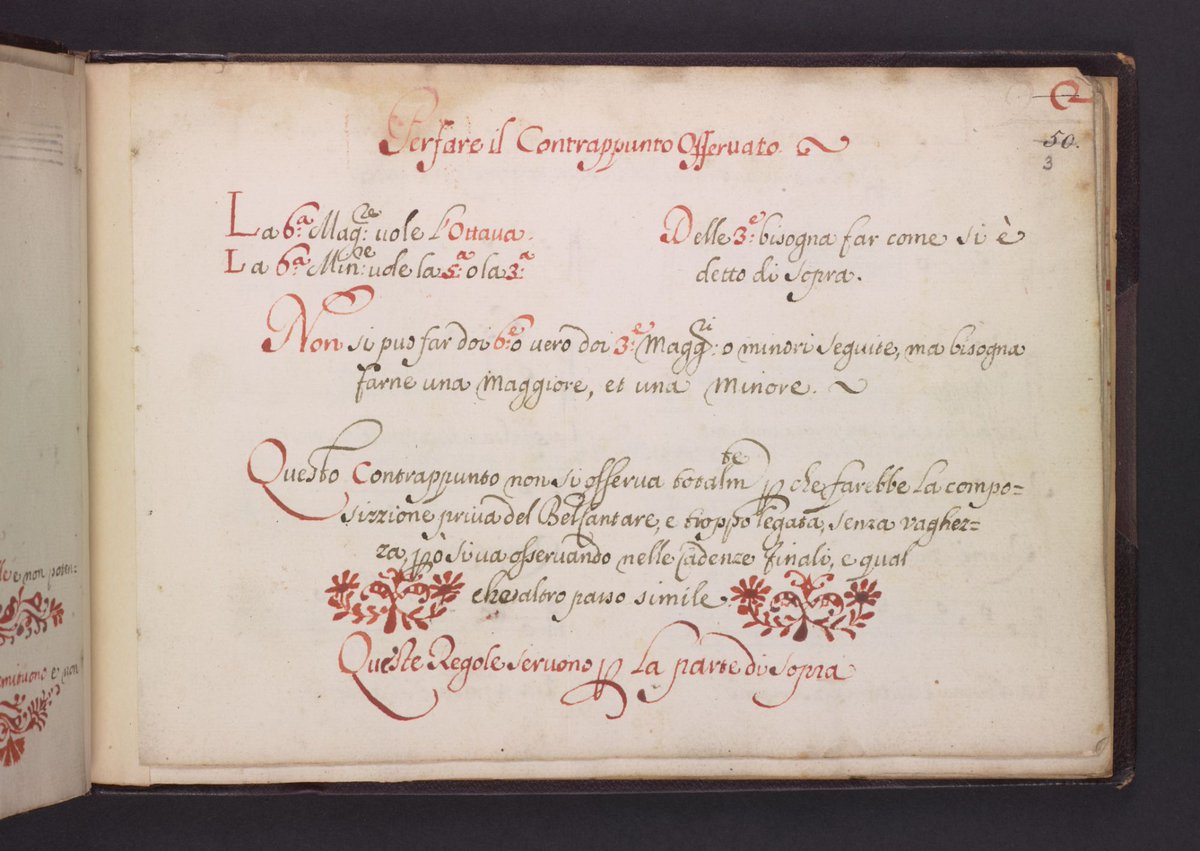 Per fare il Contrappunto Osservato.
50.
3
La 6.ª Mag.re vole l'Ottava.
La 6.ª Min.re vole la 5.ª o la 3.ª
Delle 3.e bisogna far come si è
detto di sopra.
Non si puo far doi 6.e o vero doi 3.e Magg.ri o minori seguite, ma bisogna
farne una Maggiore, et una Minore.
Questo Contrappunto non si osserva totalm.te p che farebbe la compo=
sizzione priva del Bel Cantare, e troppo legata, senza vaghez=
za, pò si va osservando nelle Cadenze finali, e qual
che altro passo simile.
Queste Regole servono p la parte di sopra
e non
e non